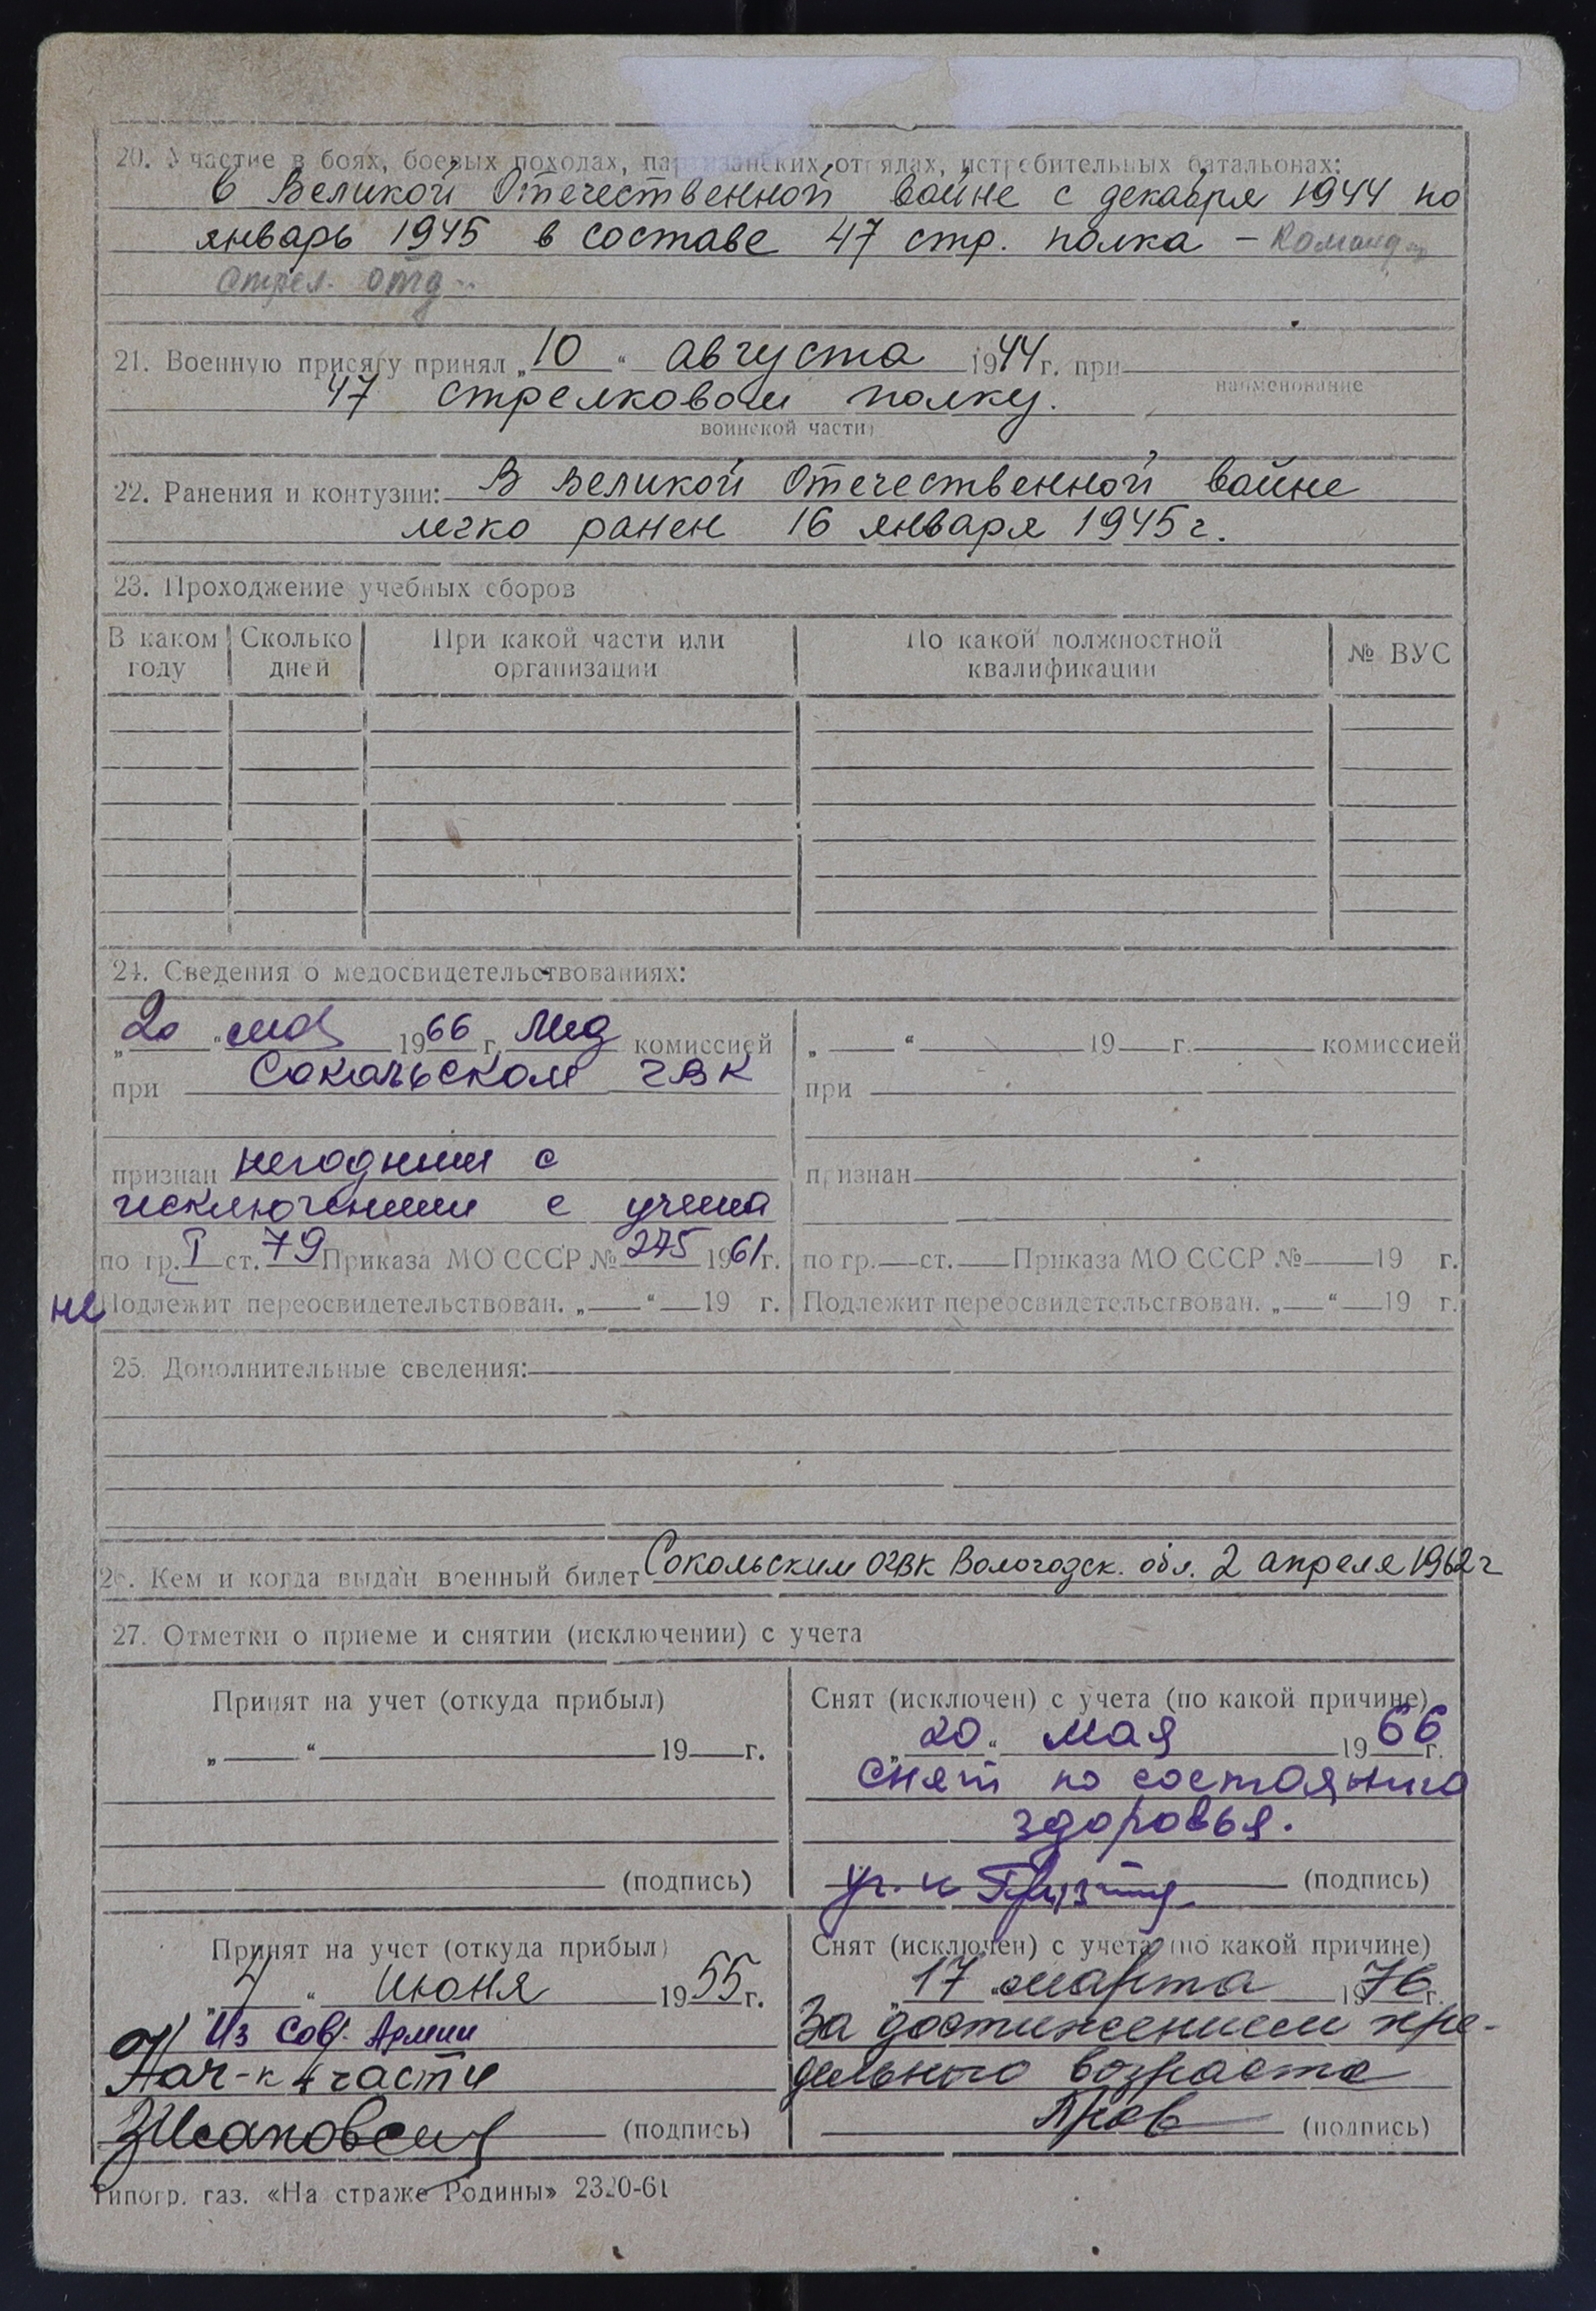 20. Участие в боях, боевых походах, партизанских отрядах, истребительных батальонах:
в Великой Отечественной войне с декабря 1944 по
январь 1945 в составе 47 стр. полка – Командир
стрел. отд.
21. Военную присягу принял „10“ августа 1944 г. при
наименование
47 стрелковом полку.
воинской части)
22. Ранения и контузии: В Великой Отечественной войне
легко ранен 16 января 1945 г.
23. Прохождение учебных сборов
В каком году Сколько дней При какой части или организации По какой должностной квалификации № ВУС
24. Сведения о медосвидетельствованиях:
„20“ мая 1966 г. Мед комиссией
при Сокольском ГВК
признан негодным с
исключением с учета
по гр. I ст. 79 Приказа МО СССР № 275 1961 г.
не Подлежит переосвидетельствован. „ “ 19 г.
„ “ 19 г. комиссией
при
признан
по гр. ст. Приказа МО СССР № 19 г.
Подлежит переосвидетельствован. „ “ 19 г.
25. Дополнительные сведения:
26. Кем и когда выдан военный билет Сокольским ОГВК Вологодск. обл. 2 апреля 1962 г
27. Отметки о приеме и снятии (исключении) с учета
Принят на учет (откуда прибыл)
„ “ 19 г.
(подпись)
Снят (исключен) с учета (по какой причине)
„20“ мая 1966 г.
снят по состоянию
здоровья.
(подпись)
Принят на учет (откуда прибыл)
„4“ июня 1955 г.
Из Сов. Армии
Нач-к 4 части
(подпись)
Снят (исключен) с учета (по какой причине)
„17“ марта 1976 г.
За достижением пре-
дельного возраста
(подпись)
Типогр. газ. «На страже Родины» 2320-61